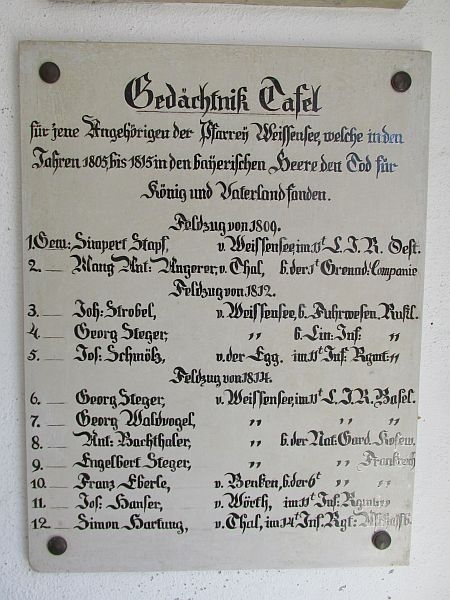 Gedächtniß Tafel
für jene Angehörigen der Pfarrey Weissensee, welche in den
Jahren 1805, bis 1815 in den bayerischen Heere den Tod für
König und Vaterland fanden.
Feldzug von 1809.
1. Gem: Simpert Stapf, v. Weissensee, im 11t L. I. R. Oest.
2. __ Mang Ant: Angerer, v. Thal, b. der 1t Grenad: Companie
Feldzug von 1812.
3. __ Joh: Strobel, v. Weissensee, b. Fuhrwesen. Rußl.
4. __ Georg Steger, ,, b. Lin: Inf: ,,
5. __ Jos: Schmölz, v. der Egg. im 11t Inf: Rgmt: ,,
Feldzug von 1814.
6. __ Georg Steger, v. Weissensee, im 11t L. I. R. Basel.
7. __ Georg Waldvogel, ,, ,, ,,
8. __ Ant: Bachthaler, ,, b. der Nat: Gard.
9. __ Engelbert Steger, ,, ,, Frankreich
10. __ Franz Eberle, v. Benken, b. der 6t ,, ,,
11. __ Jos: Hanser, v. Wörth, im 11t Inf: Rgmt: ,,
12. __ Simon Hartung, v. Thal, im 14t Inf. Rgt: